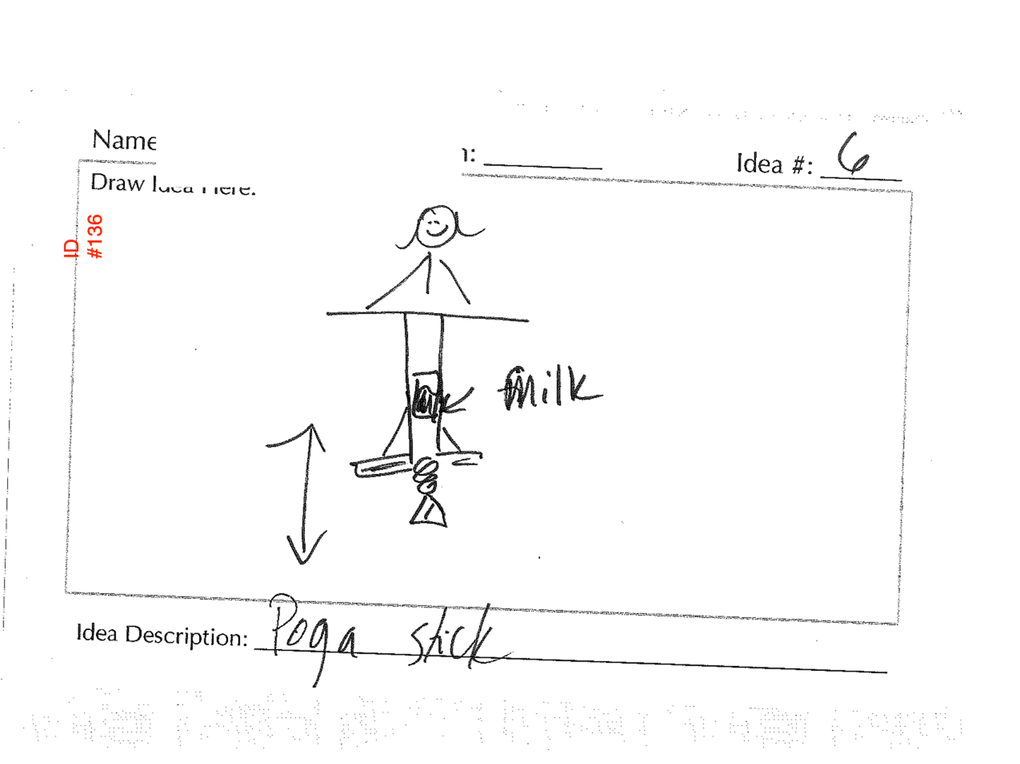 Name
Idea #: 6
Draw Idea Here:
ID
#136
milk
Idea Description: Poga stick